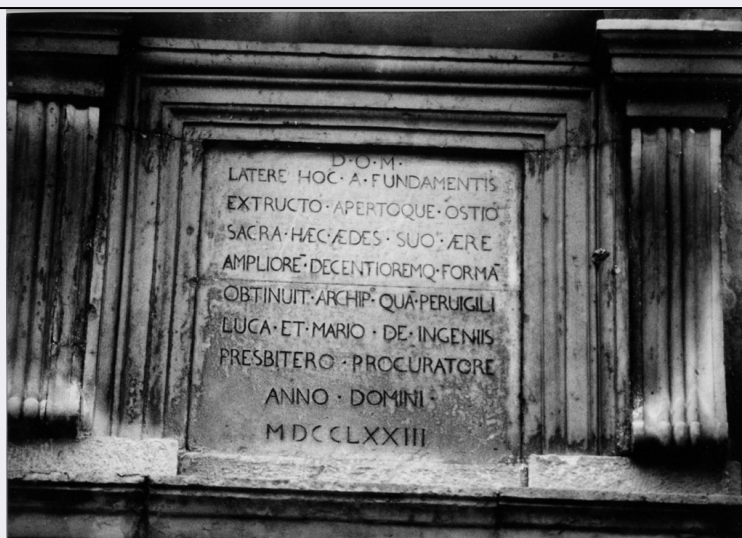 D·O·M·
LATERE HOC·A·FUNDAMENTIS
EXTRUCTO·APERTOQUE·OSTIO
SACRA·HÆC·ÆDES·SUO·ÆRE
AMPLIORĒ·DECENTIOREMQ·FORMĀ
OBTINUIT·ARCHIP·QUĀ·PERUIGILI
LUCA·ET·MARIO·DE·INGENIIS
PRESBITERO·PROCURATORE
ANNO·DOMINI·
MDCCLXXIII